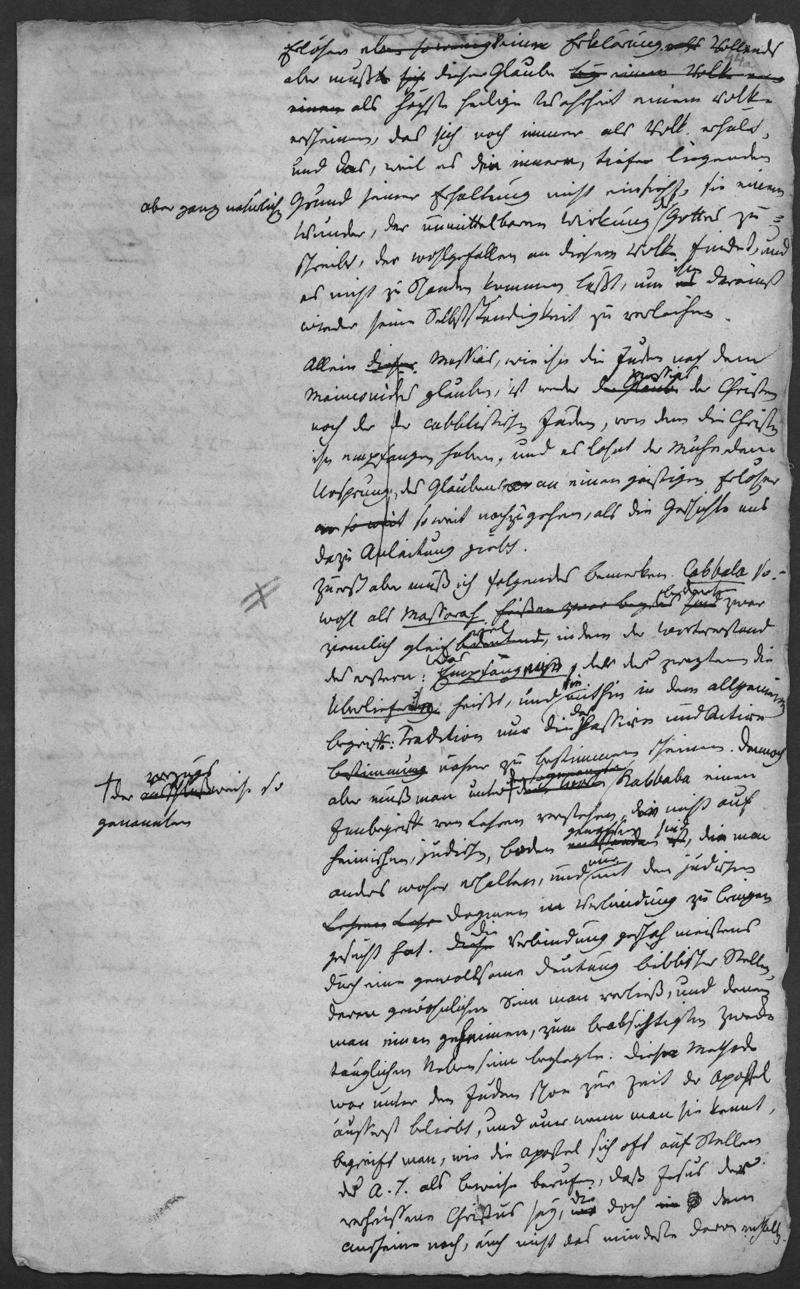 Erlöser eben so wenig einer Erklärung. Vollends
aber mußte sich dieser Glaube bey einem Volk
einem als höchste heilige Wahrheit einem Volke
erscheinen, das sich noch immer als Volk erhält,
und das, weil es den innern, tiefer liegenden
aber ganz natürlichen
Grund seiner Erhaltung nicht einsieht, sie einem
Wunder, der unmittelbaren Wirkung Gottes zu=
schreibt, der Wohlgefallen an diesem Volke findet, und
es nicht zu Schanden kommen läßt, um ihm dereinst
wieder seine Selbstständigkeit zu verleihen.
Allein dieser Messias, wie ihn die Juden nach dem
Maimonides glauben, ist weder der Glaube Messias der Christen
noch der der cabblistischen Juden, von dem die Christen
ihn empfangen haben, und es lohnt der Mühe dem
Ursprung des Glaubens an einen geistigen Erlöser
so weit so weit nachzugehen, als die Geschichte uns
dazu Anleitung giebt.
Zuerst aber muß ich folgendes bemerken. Cabbala so=
wohl als Massorah heißen zwar bedeutet zwar
ziemlich gleich viel bedeutend, indem der Wortverstand
des erstern: das Empfangniß, der des zweytem die
Überlieferung heißt, und mithin in dem allgemeinen
begriff: Tradition nur die Passive und Active
bestimmung näher zu bestimmen scheinen. Dennoch
aber muß man unter der sogenannten Kabbala einen
† der vorzugsweise so
genannten
Innbegriff von Lehren verstehen, die nicht auf
heimischen, jüdischen, boden gewachsen sind, die man
anders woher erhalten, und nur mit den jüdischen
Lehren Dogmen in Verbindung zu bringen
gesucht hat. Diese die Verbindung geschah meistens
durch eine gewaltsame Deutung biblischer Stellen,
deren gewöhnlichen Sinn man verließ, und denen
man einen geheimen, zum beabsichtigten Zwecke
tauglichen Nebensinn beylegte. Diese Methode
war unter den Juden schon zur Zeit der Apostel
äusserst beliebt, und nur wenn man sie kennt,
begreift man, wie die Apostel sich oft auf Stellen
des A. T. als beweise berufen, daß Jesus der
verheissene Christus sey, die doch dem
Anscheine nach, auch nicht das mindeste davon enthalten